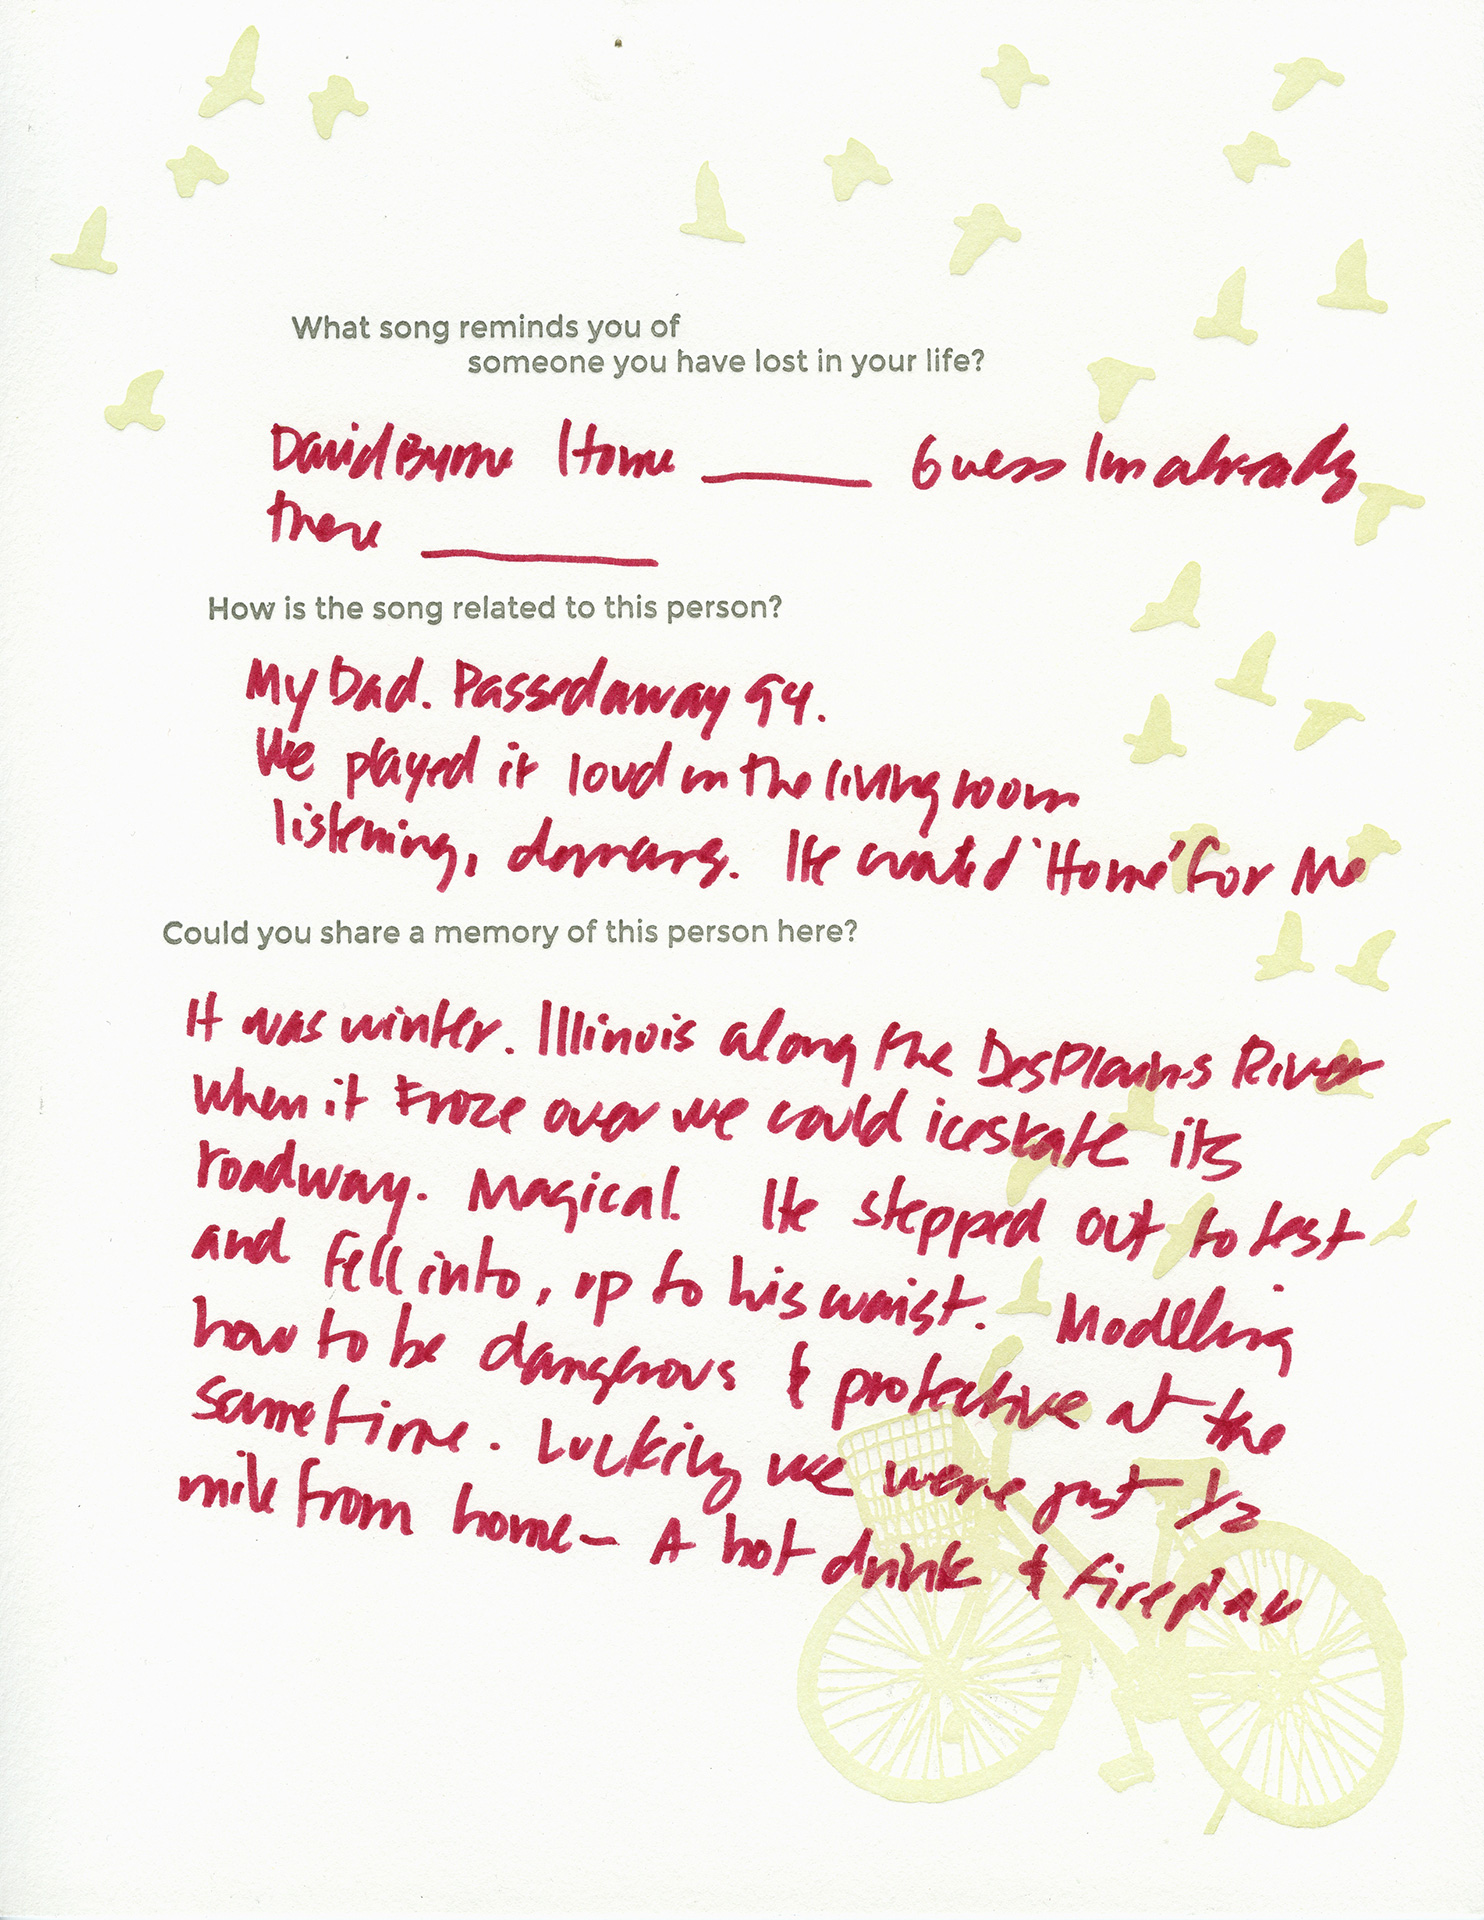 What song reminds you of
someone you have lost in your life?
David Byrne Home _____ Guess Im already
there _____
How is the song related to this person?
My Dad. Passed away 94.
We played it loud in the living room
listening, . He created 'Home' for Me
Could you share a memory of this person here?
It was winter. Illinois along the DesPlaines River
when it froze over we could iceskate its
roadway. Magical. He stepped out to test
and fell into, up to his waist. Modelling
how to be dangerous & protective at the
same time. Luckily we were just 1/2
mile from home – A hot drink & fireplace